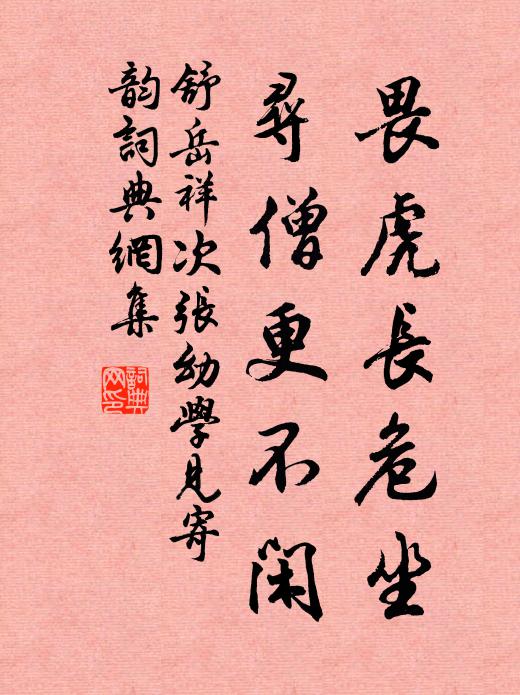 畏虎長危坐
尋僧更不閑
舒岳祥次張幼學見寄
韵詞典網集
詞典
网印